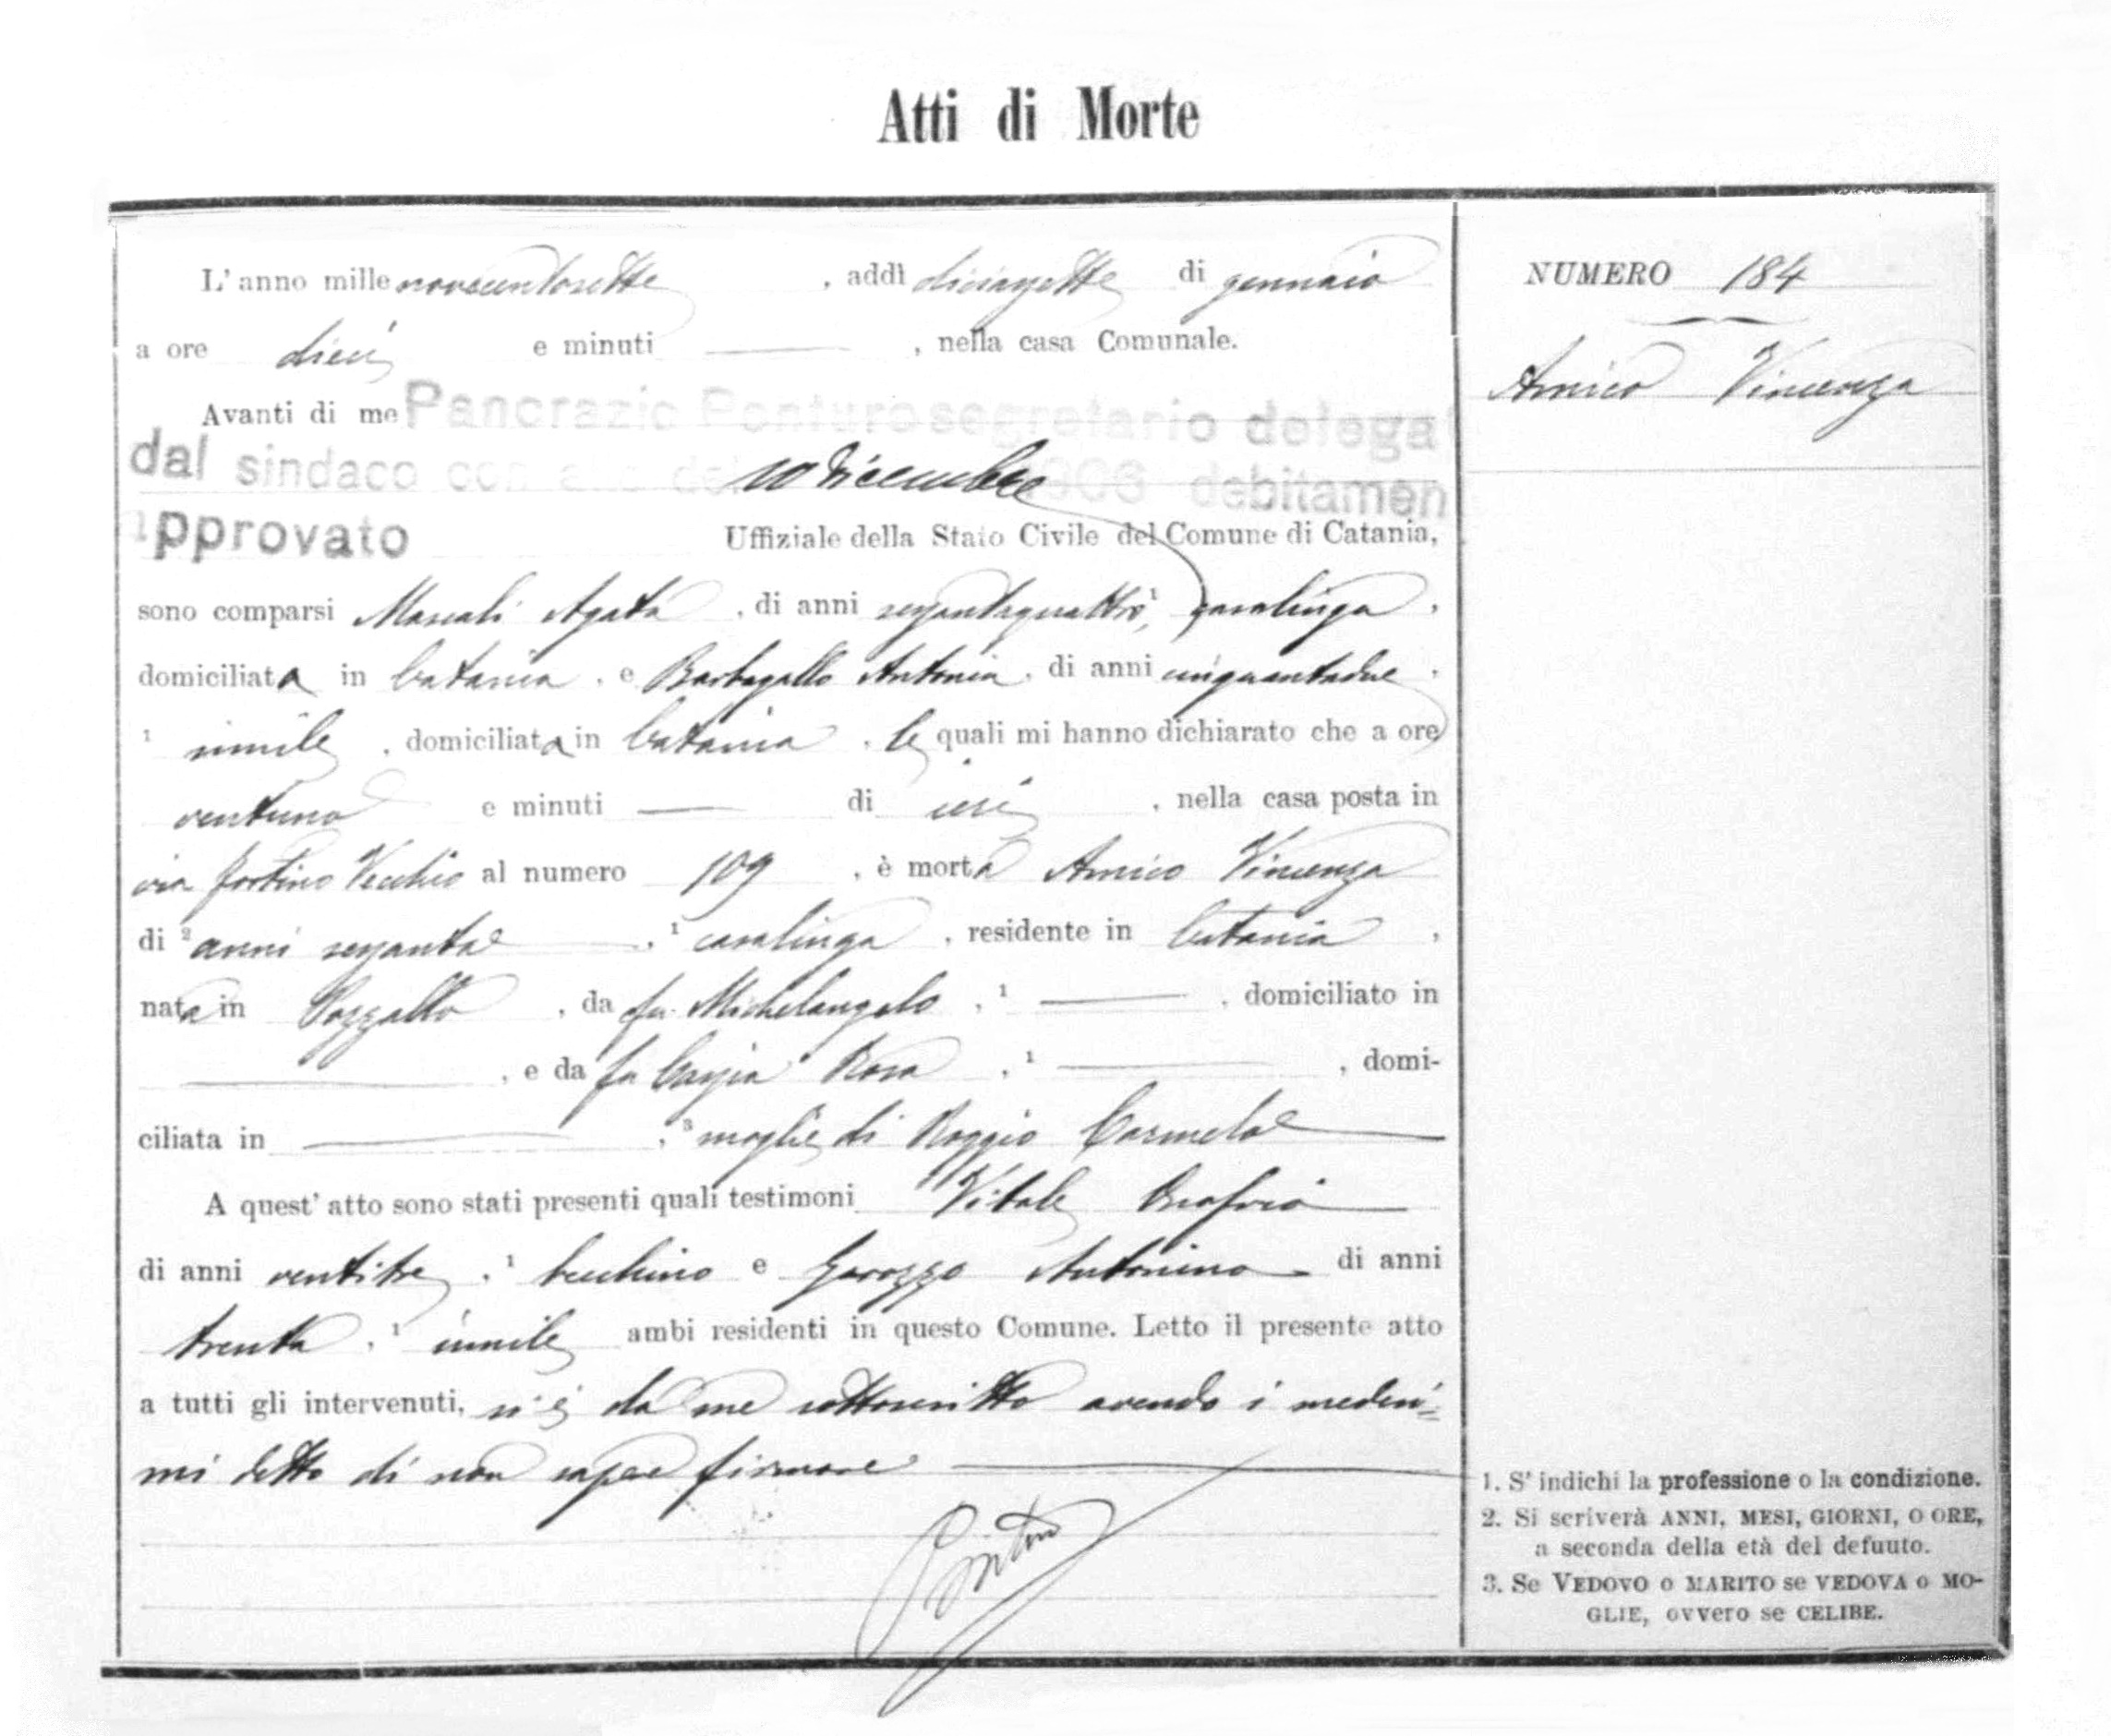 Atti di Morte
L'anno mille novecentosette, addì diciasette di gennaio
a ore dieci e minuti ——, nella casa Comunale.
Avanti di me Pancrazio Ponturo segretario delega
dal sindaco con atto del 10 Dicembre 1906 debitamen
approvato Uffiziale della Stato Civile del Comune di Catania,
sono comparsi Mascali Agata, di anni sessantaquattro, ¹ casalinga,
domiciliata in Catania, e Barbagallo Antonia, di anni cinquantadue,
¹ simile, domiciliata in Catania, le quali mi hanno dichiarato che a ore
ventuno e minuti —— di ieri, nella casa posta in
via Fortino Vecchio al numero 109, è morta Amico Vincenza
di ² anni sessanta, ¹ casalinga, residente in Catania,
nata in Pozzallo, da fu Michelangelo, ¹ ——, domiciliato in
——, e da fu Rosa, ¹ ——, domi-
ciliata in ——, ³ moglie di Roggio Carmelo
A quest' atto sono stati presenti quali testimoni Vitale Onofrio
di anni ventitre, ¹ becchino e Garozzo Antonino di anni
trenta, ¹ simile ambi residenti in questo Comune. Letto il presente atto
a tutti gli intervenuti, si è da me sottoscritto avendo i medesi=
mi detto di non sapere firmare
NUMERO 184
Amico Vincenza
1. S' indichi la professione o la condizione.
2. Si scriverà ANNI, MESI, GIORNI, O ORE,
a seconda della età del defunto.
3. Se VEDOVO o MARITO se VEDOVA o MO-
GLIE, ovvero se CELIBE.